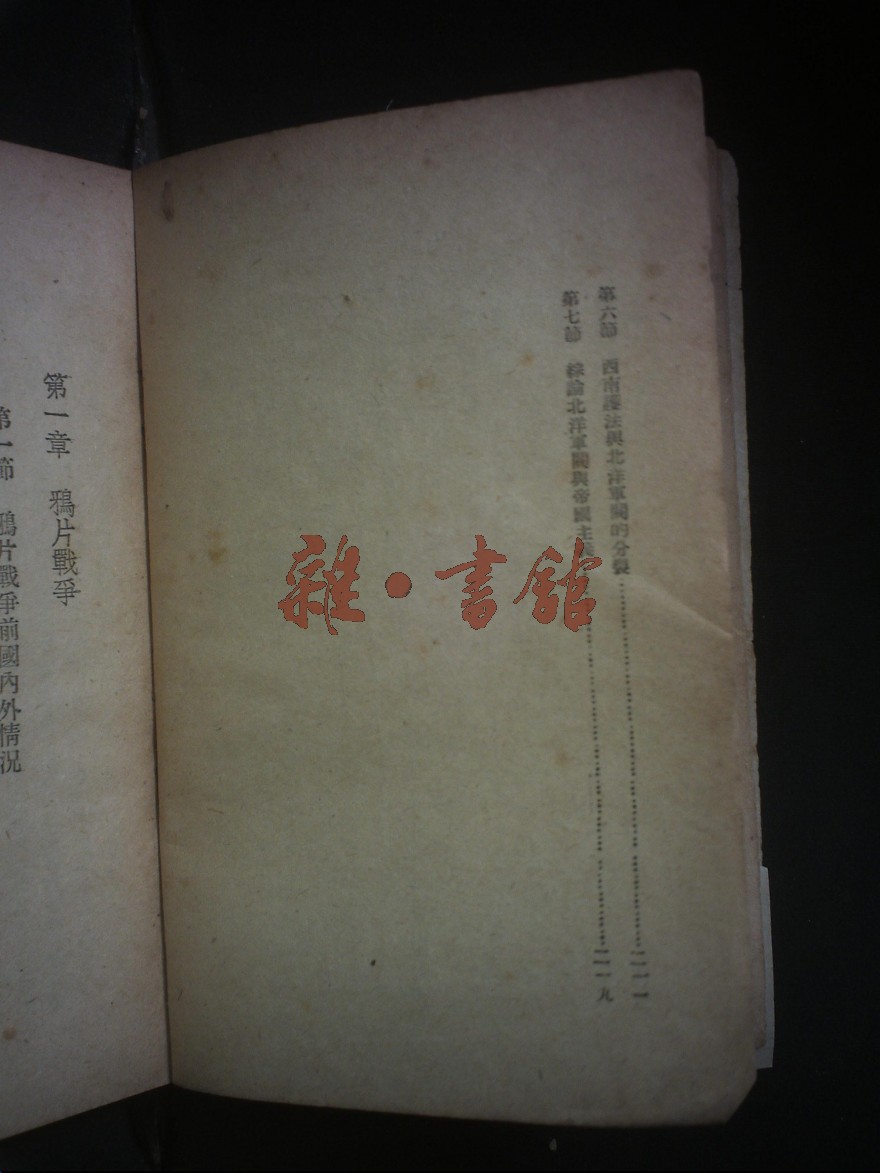 第六節 西南護法與北洋軍閥的分裂…………二一一
第七節 綜論北洋軍閥與帝國主義…………二一九
雜·書館
第一章 鴉片戰爭
第一節 鴉片戰爭前國內外情況